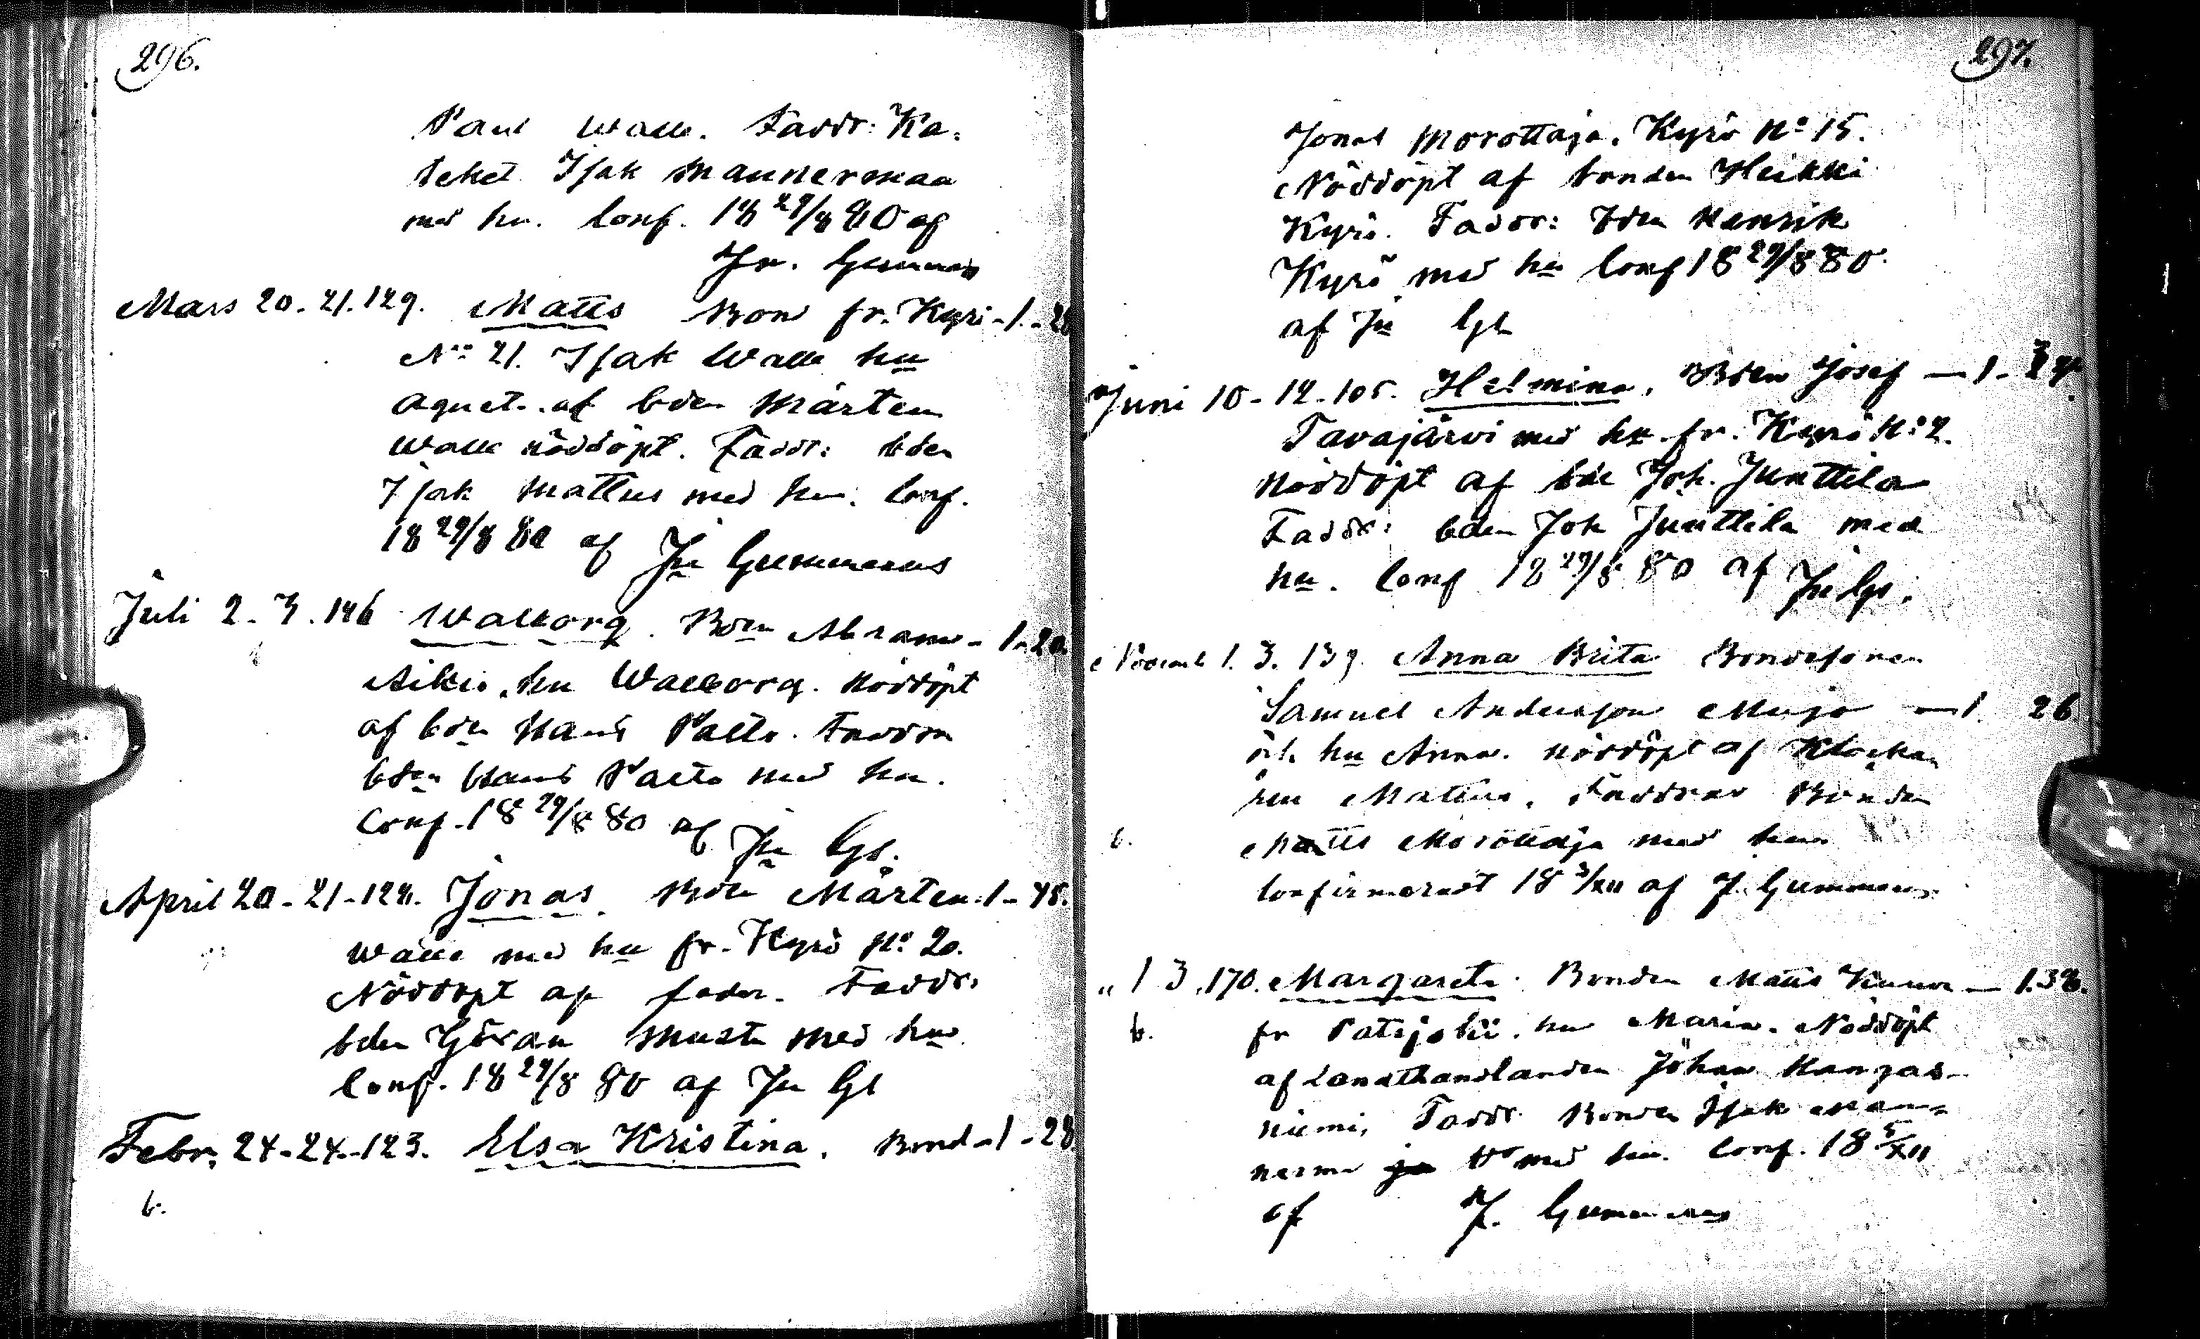 296.
Paul Walle. Faddr: Ka-
teket Isak Mannermaa
med hu. Conf. 18 29/8 80 af
Jn. Gummerus
Mars 20. 21. 129. Matts Bond fr. Kyrö - 1. - 28
No 21. Isak Walle hu
Agnet. af bden Mårten
Walle nöddöpt. Faddr: bden
Isak Mattus med hu. Conf.
18 29/8 80 af Jn Gummerus
Juli 2 - 3. 146 Walborg. Bden Abram - 1 - 20
Aikio, hu Walborg. Nöddöpt
af bden Hans Palto. Faddra
bden Hans Palto med hu.
Conf. 18 29/8 80 af Jn Gs.
April 20 - 21 - 128. Jonas. Bden Mårten - 1 - 45.
Walle med hu fr. Kyrö No 20.
Nöddöpt af fader. Faddr:
bden Göran Musta med hu
Conf. 18 29/8 80 af Jn Gs
Febr. 24 - 24 - 123. Elsa Kristina. Bond - 1 - 28
b.
297.
Jonas Morottaja. Kyrö No 15.
Nöddöpt af bonden Heikki
Kyrö. Faddr: bden Henrik
Kyrö med hu Conf 18 29/8 80
af Jn Gs
Juni 10 - 12 - 105. Helmina. Bden Josef — 1 - 34
Tavajärvi med hu fr. Kyrö No 2.
Nöddöpt af bde Joh. Junttila
Faddr: bden Joh Junttila med
hu. Conf 18 29/8 80 af Jn Gs.
Novemb 1. 3. 139. Anna Brita Bondesonen
Samuel Andersson Mujo — 1. 26
och hu Anna. Nöddöpt af Klocka
ren Mattus. Faddrar Bonden
b. Matts Morottaja med hu
Confirmeradt 18 3/XII af J. Gummerus
„ 1 3. 170. Margareta. Bonden Matts Kiuru — 1. 38.
b. fr Patsjoki. hu Maria. Nöddöpt
af Landthandlanden Johan Kangas-
niemi, Faddr Bonden Isak Man-
nerma med hu. Conf. 18 5/XII
af J. Gummerus